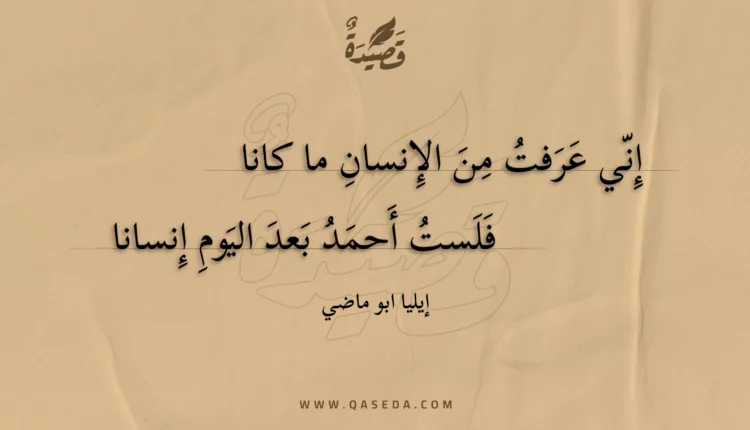 قَصِيدَةٌ
إِنّي عَرَفتُ مِنَ الإِنسانِ ما كانا
فَلَستُ أَحمَدُ بَعدَ اليَومِ إِنسانا
إيليا ابو ماضي
WWW.QASEDA.COM